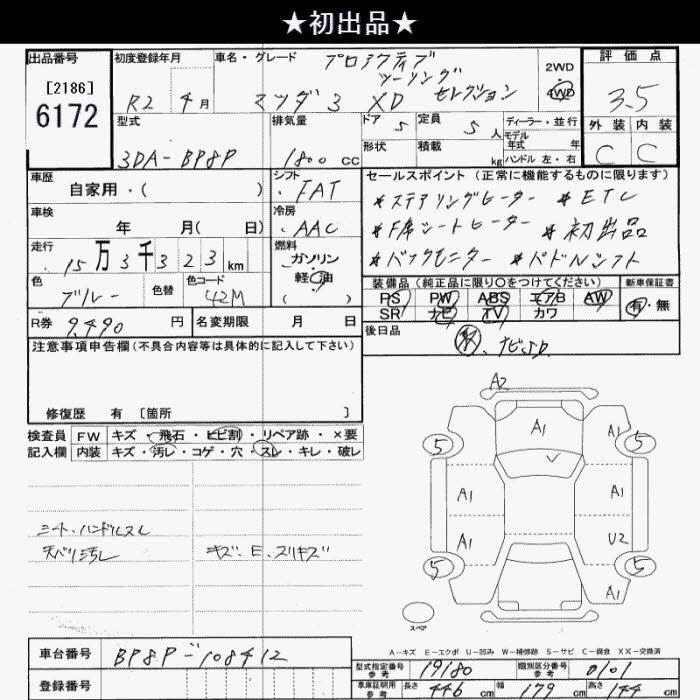 ★初出品★
出品番号
[2186]
6172
初度登録年月
R2 4月
車名・グレード
プロアクティブ
ツーリング
マツダ3 XD セレクション
2WD
4WD
評価点
3.5
外装 内装
C C
型式
3DA-BP8P
排気量
1800 cc
ドア 5
定員 5人
ディーラー・並行
モデル年式 年
形状
積載 kg
ハンドル 左・右
車歴
自家用・( )
シフト
FAT
セールスポイント(正常に機能するものに限ります)
*ステアリングヒーター *ETC
*F席シートヒーター *初出品
*バックモニター *パドルシフト
車検
年 月( 日)
冷房
AAC
走行
15万3千323km
燃料
ガソリン
軽油
( )
色
ブルー
色替
色コード
42M
装備品(純正品に限り○をつけてください)
PS PW ABS エアB AW
SR ナビ TV カワ
新車保証書
有・無
R券 9,490円
名変期限 月 日
後日品
取、ナビSD
注意事項申告欄(不具合内容等は具体的に記入して下さい)
修復歴 有 [箇所 ]
検査員
記入欄
FW キズ・飛石・ヒビ割・リペア跡・×要
内装 キズ・汚レ・コゲ・穴・スレ・キレ・破レ
シート、ハンドルスレ
天バリ汚レ
キズ、E、スリキズ
A2
A1
A1
A1
A1
A1
A1
U2
A1
5
5
5
5
スペア
A-キズ E-エクボ U-凹み W-補修跡 S-サビ C-腐食 XX-交換済
車台番号
BP8P-108412
登録番号
型式指定番号 参考 19180
類別区分番号 参考 0101
車庫証明用 参考 長さ 446 cm 幅 179 cm 高さ 144 cm